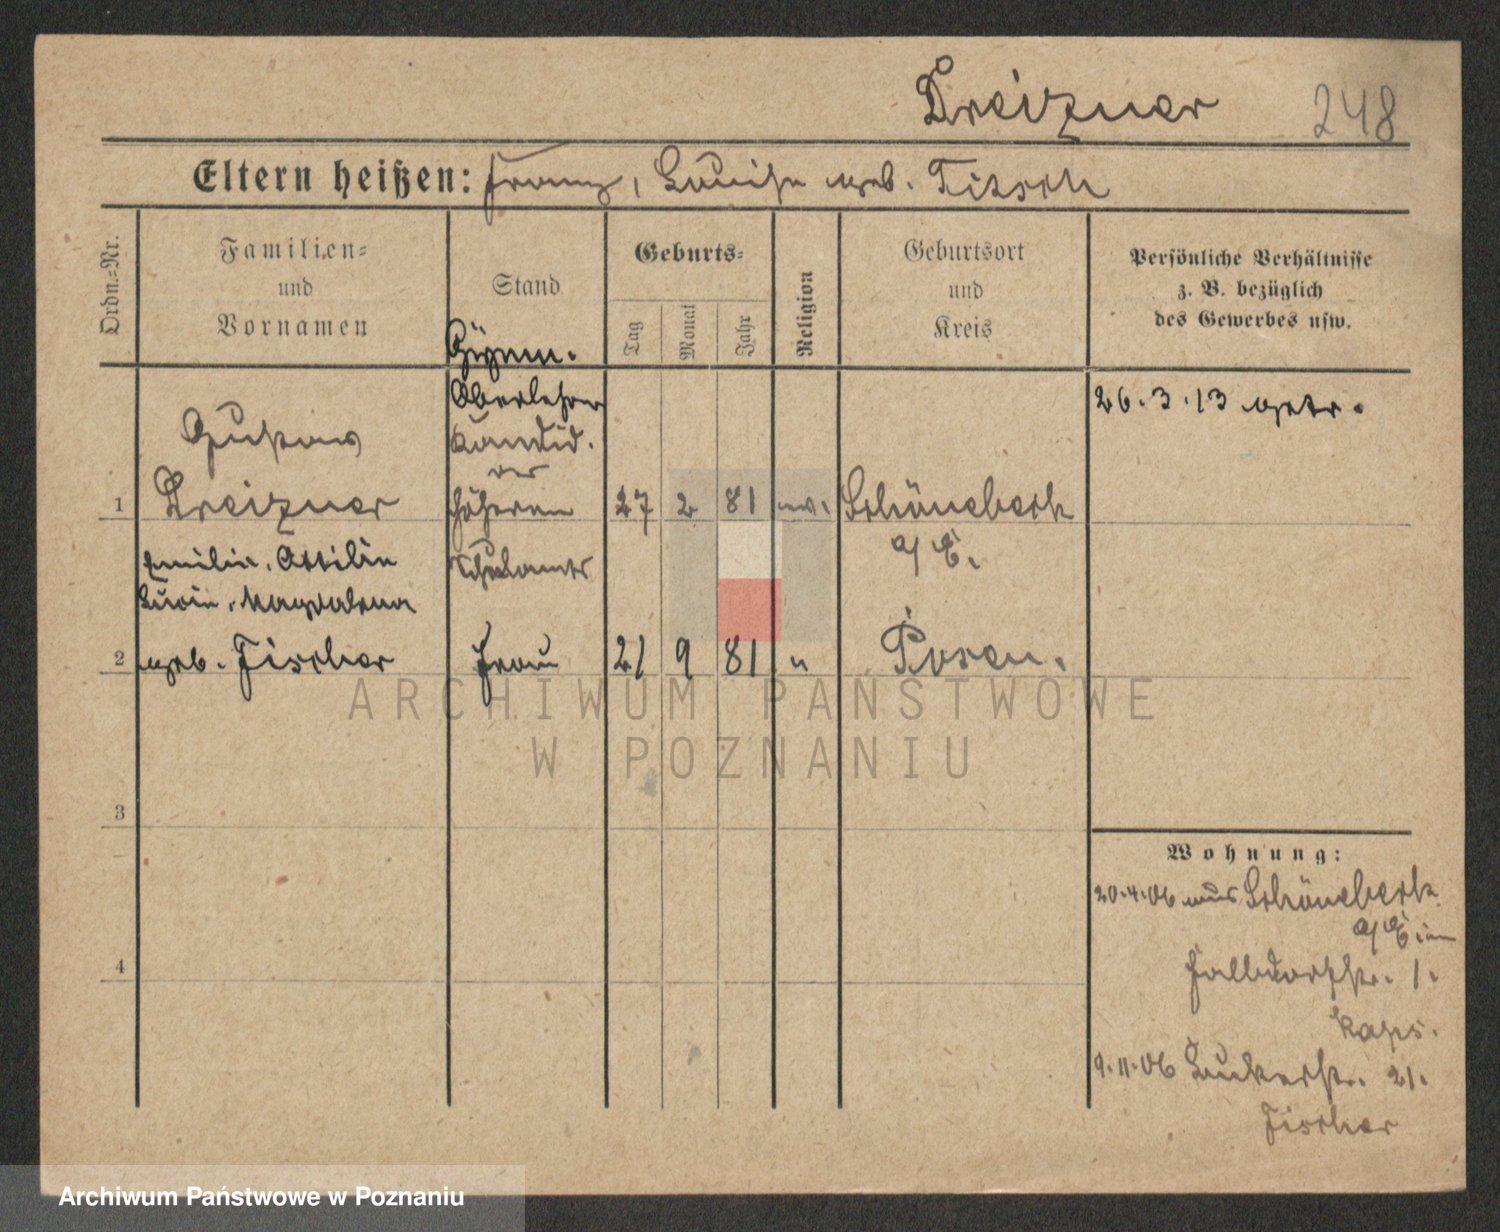 Kreizner 248
Eltern heißen: Franz, Louise geb. Titsch
Ordn.=Nr.
Familien=
und
Vornamen
Stand
Geburts=
Tag
Monat
Jahr
Religion
Geburtsort
und
Kreis
Persönliche Verhältnisse
z. B. bezüglich
des Gewerbes usw.
Gymn.
Oberlehrer
26.3.13 getr.
Gustav
Kandid.
der
1 Kreizner höheren 27 2 81 ev. Schönebeck
a/E.
Schulamts
Emilie, Ottilie
Lucie, Magdalena
2 geb. Fischer Frau 21 9 81 " Posen.
ARCHIWUM PAŃSTWOWE
W POZNANIU
3
Wohnung:
20.4.06 aus Schönebeck
a/E in
4
1.
9.11.06 21.
Fischer
Archiwum Państwowe w Poznaniu